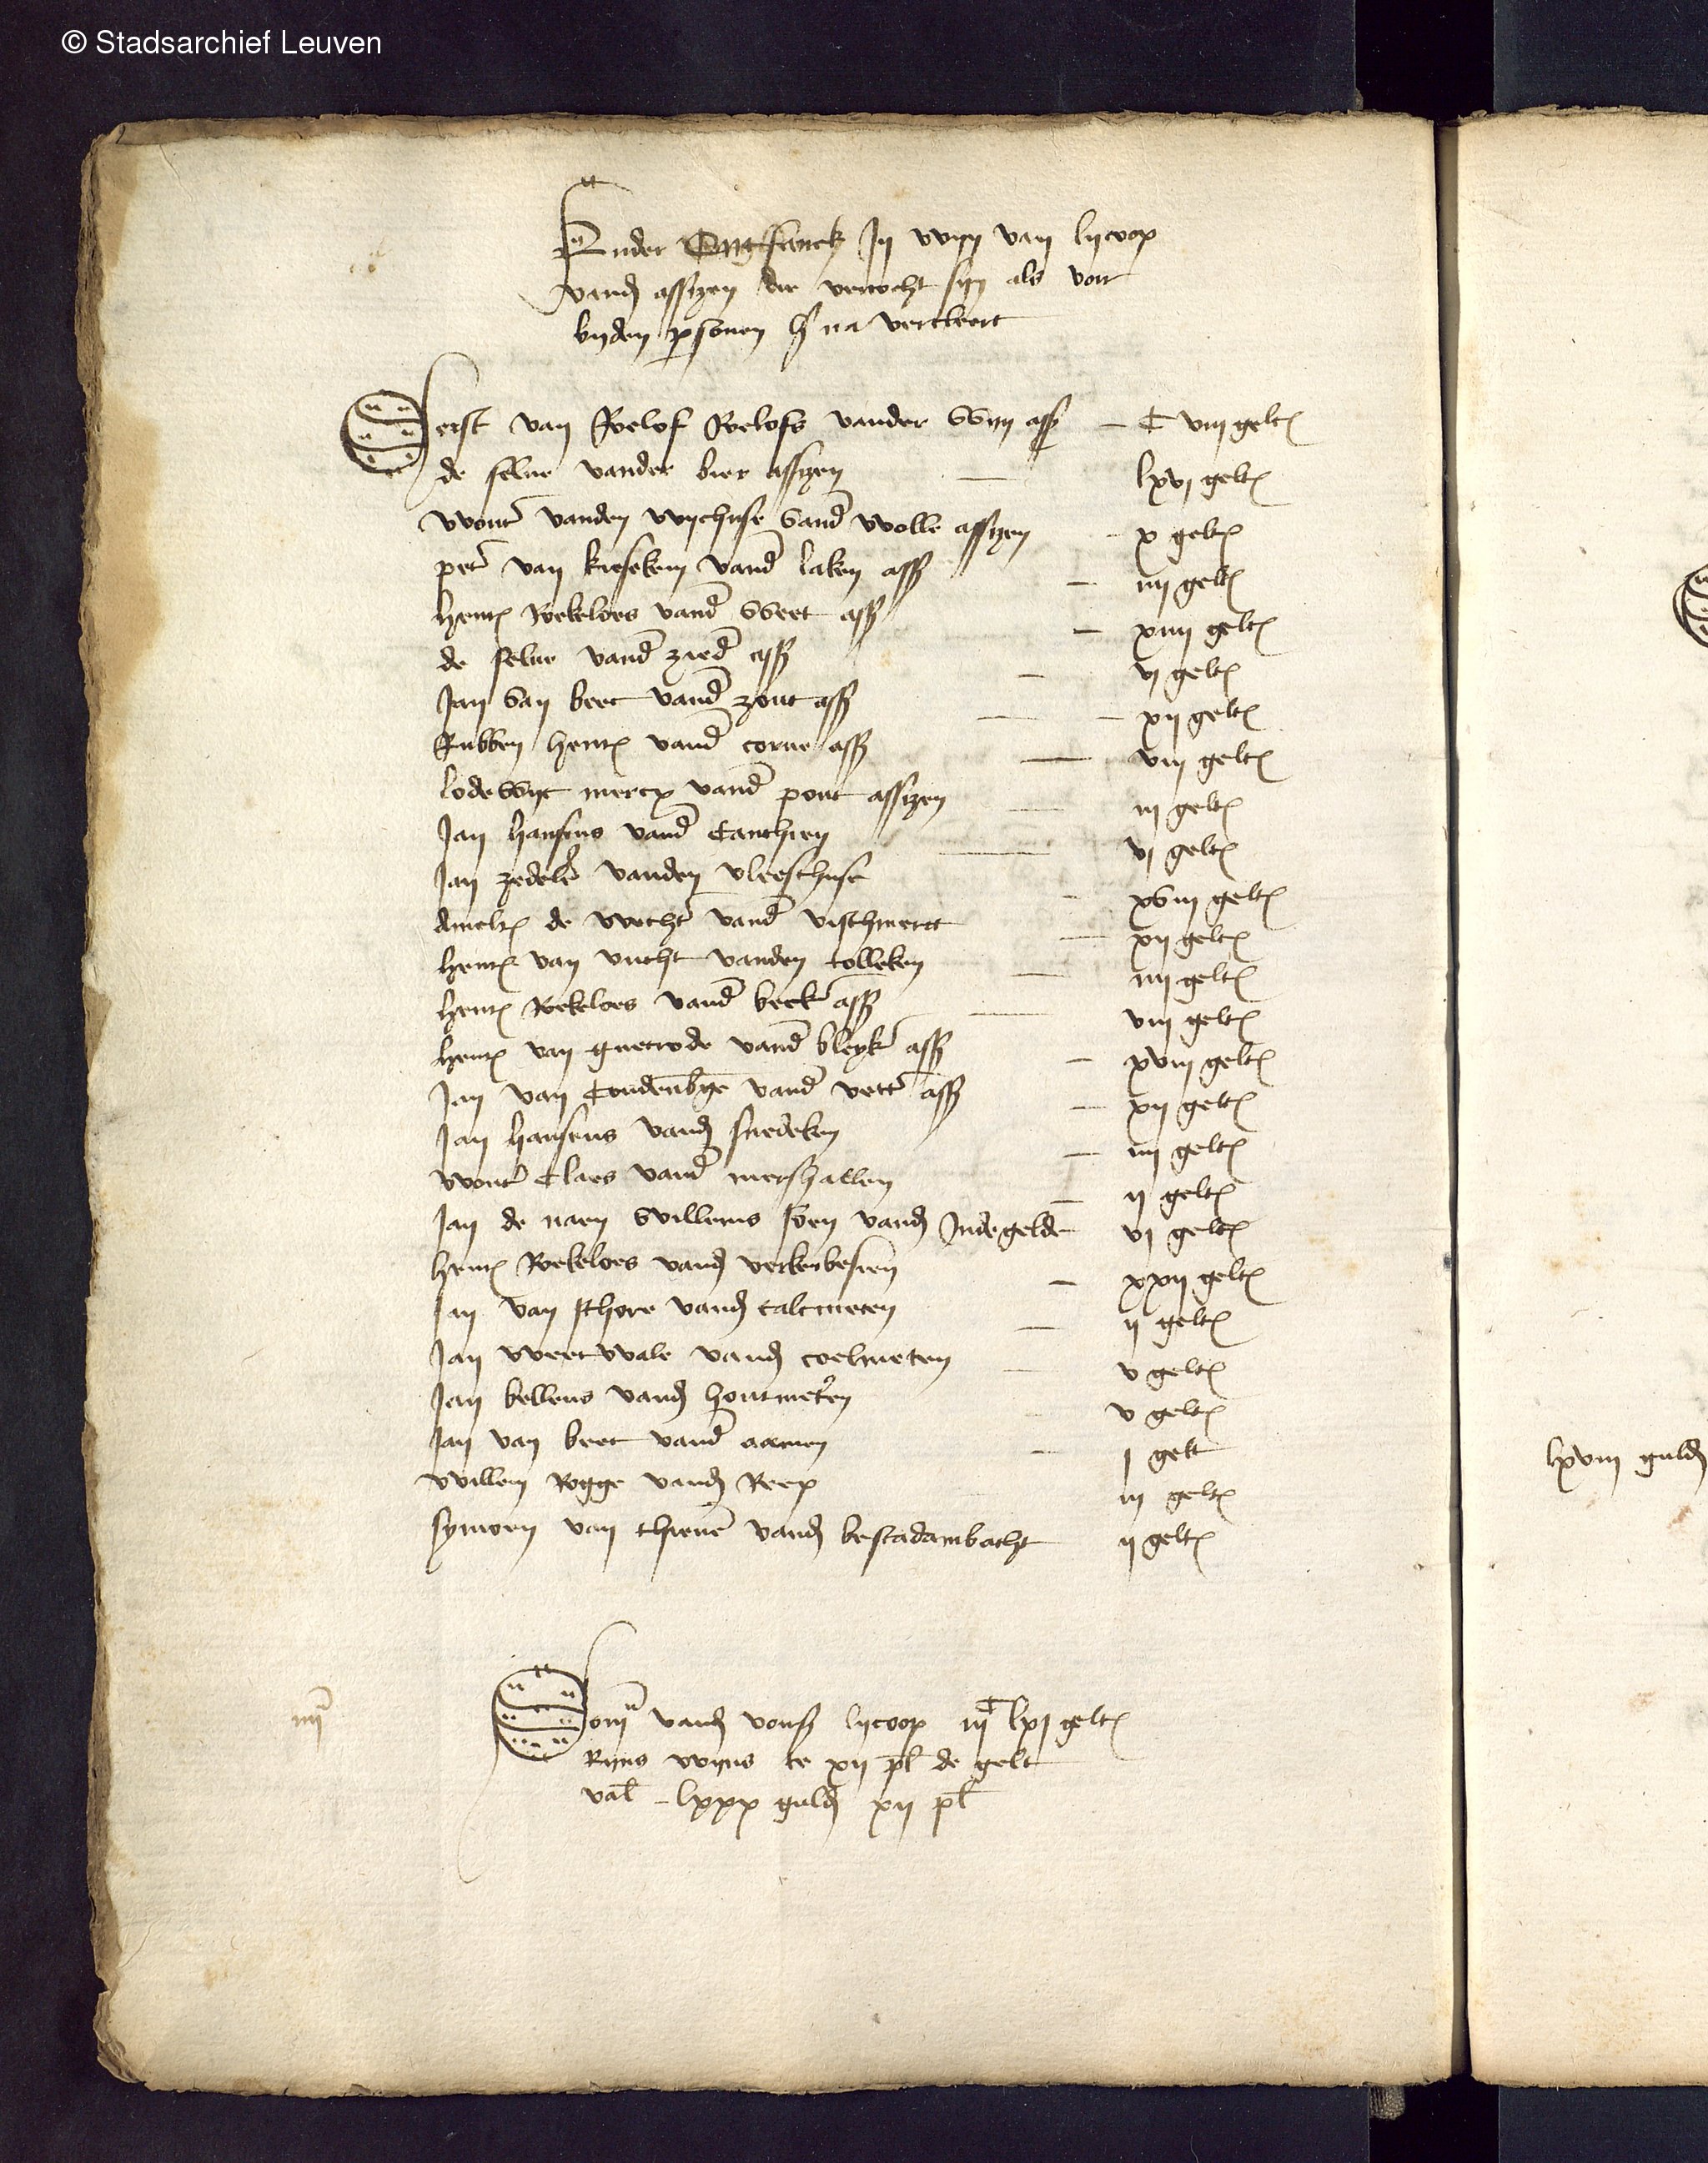 © Stadsarchief Leuven
Ander Ontfanck In wijn van lijcoop
vand assizen die vercocht sijn als voir
bijden psonen h na vercleert
Eerst van Roelof Roelofs vander wijn ass – C viij gelt
de selue vander bier assizen – lxvj gelt
Wout vanden wijchuse vand wolle assizen – x gelt
pet van kiesekem vand laken ass – iiij gelt
henr Roekeloes vand weet ass – xiiij gelt
de selue vand zied ass – vj gelt
Jan van beet vand zout ass – xij gelt
Rubben henr vand corne ass – viij gelt
lodewijc mercx vand pont assizen – iij gelt
Jan hansens vand Canthien – vj gelt
Jan zedele vanden vleeschuse – xviij gelt
Amelr de wecht vand vischmerct – xij gelt
henr van vucht vanden tolleken – iiij gelt
henr Roekeloes vand beck ass – viij gelt
henr van guetrode vand bleyk ass – xviij gelt
Jan van Coudenbge vand vett ass – xij gelt
Jan hansens vand snedeken – iiij gelt
Wout Claes vand mershallen – ij gelt
Jan de naen Willems soen vand Indegelde vj gelt
henr Roekeloes vand verkenbesien – xxij gelt
Jan van schore vand calcmeten – ij gelt
Jan Weerwale vand coelmeten – v gelt
Jan bellens vand houtmeten v gelt
Jan van beet vand aamen – j gelt
Willem Rogge vand Reep iij gelt
symoen van thiene vand bestadambacht ij gelt
iiij
Som vand vors lijcoop iij C lxj gelt
Rijns wijns te xij pl de gelt
val – lxxx guld xij pl
lxviij guld